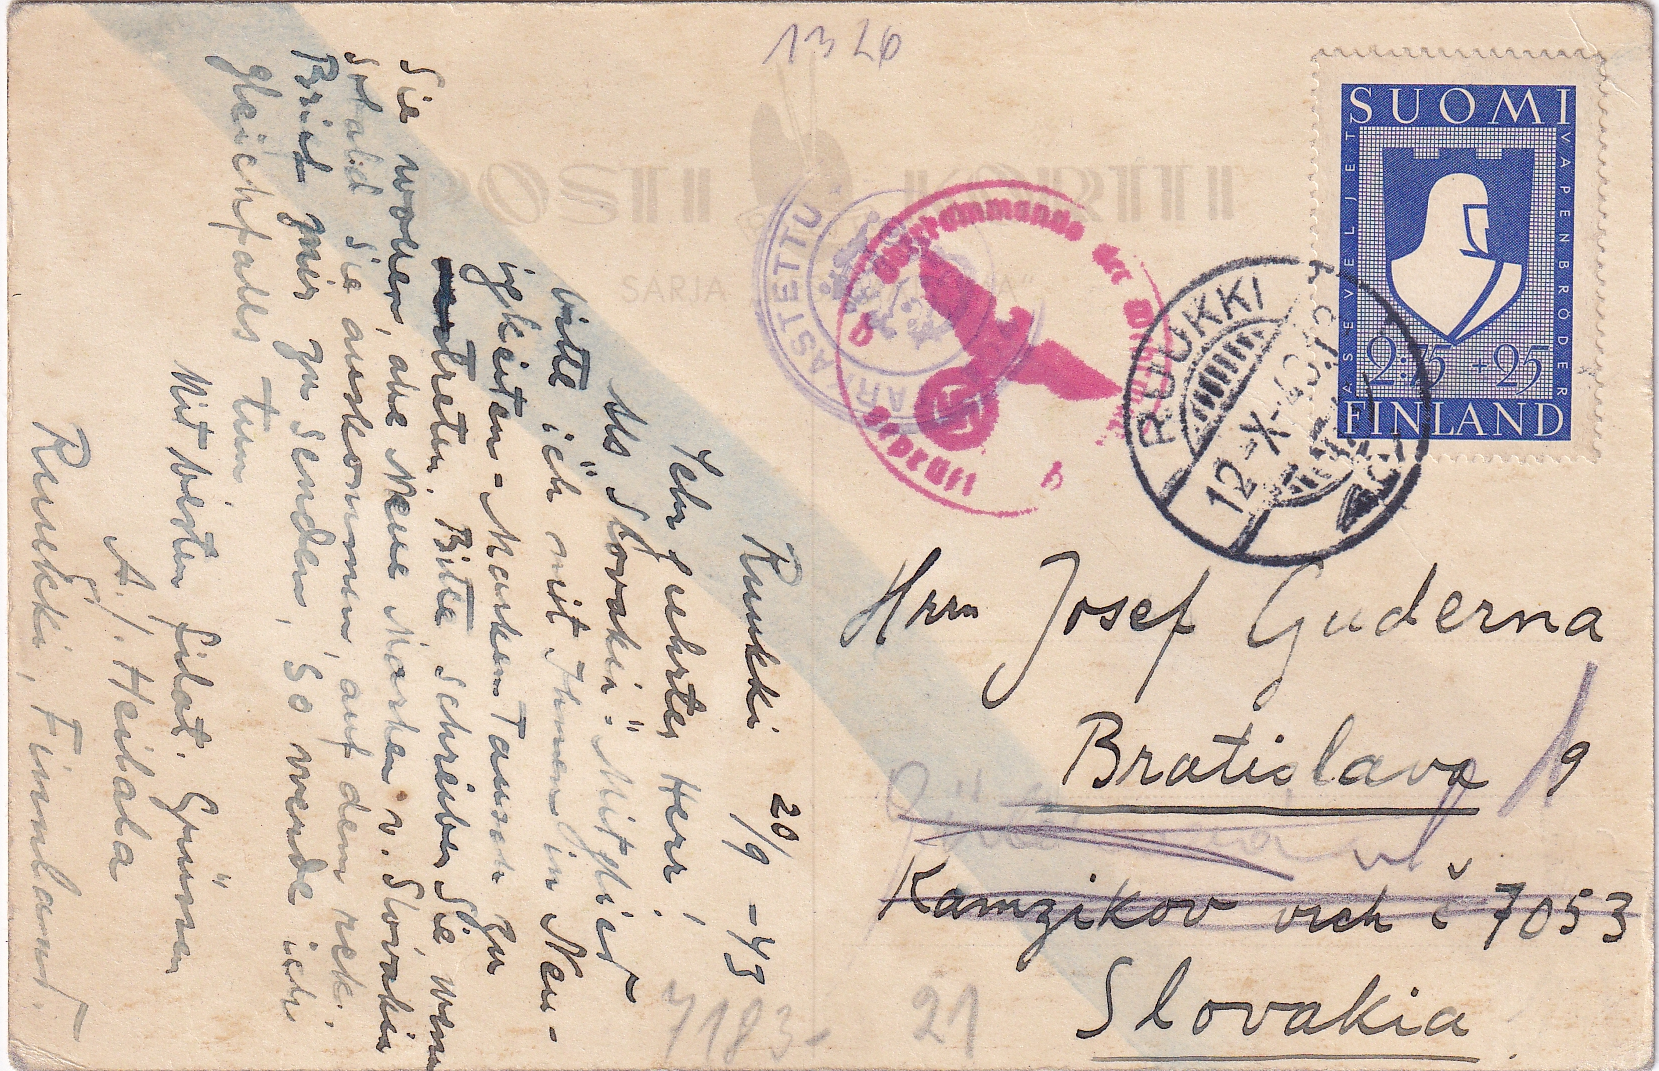 1326
POSTI KORTTI
SARJA
SUOMI
ASEVELJET
VAPENBRÖDER
2:75 +25
FINLAND
RUUKKI
12-X-43
TARKASTETTU
Oberkommando der
Geprüft
b
Ruukki 20/9 -43
Sehr geehrter Herr!
Als "Slovakia" Mitglied
bitte ich mit Ihnen in Neu-
igkeiten-Marken Tausch zu
treten. Bitte schreiben Sie, wenn
Sie wollen, alle Neue Marken v. Slovakien
sobald sie auskommen, auf dem rek.
Brief mir zu senden, so werde ich
gleichfalls tun
Mit besten filat. Grüssen
A. J. Heilala
Ruukki, Finnland.
Herrn Josef Guderna
Bratislava 9
Kamzikov vrch č 7053
Slovakia
7183-
21